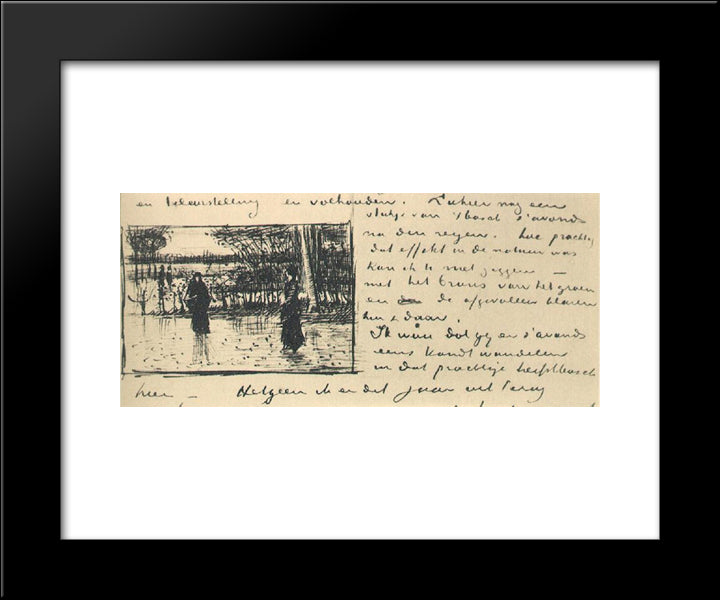 en teleurstelling en volhouden. Ziehier nog een
stukje van 't bosch 's avonds
na den regen. hoe prachtig
dat effekt in de natuur was
kan ik U niet zeggen –
met het brons van het groen
en de afgevallen blaren
hier & daar.
Ik wou dat gij er 's avonds
eens kondt wandelen
in dat prachtige herfstbosch
hier – Hetgeen ik er dit jaar uit